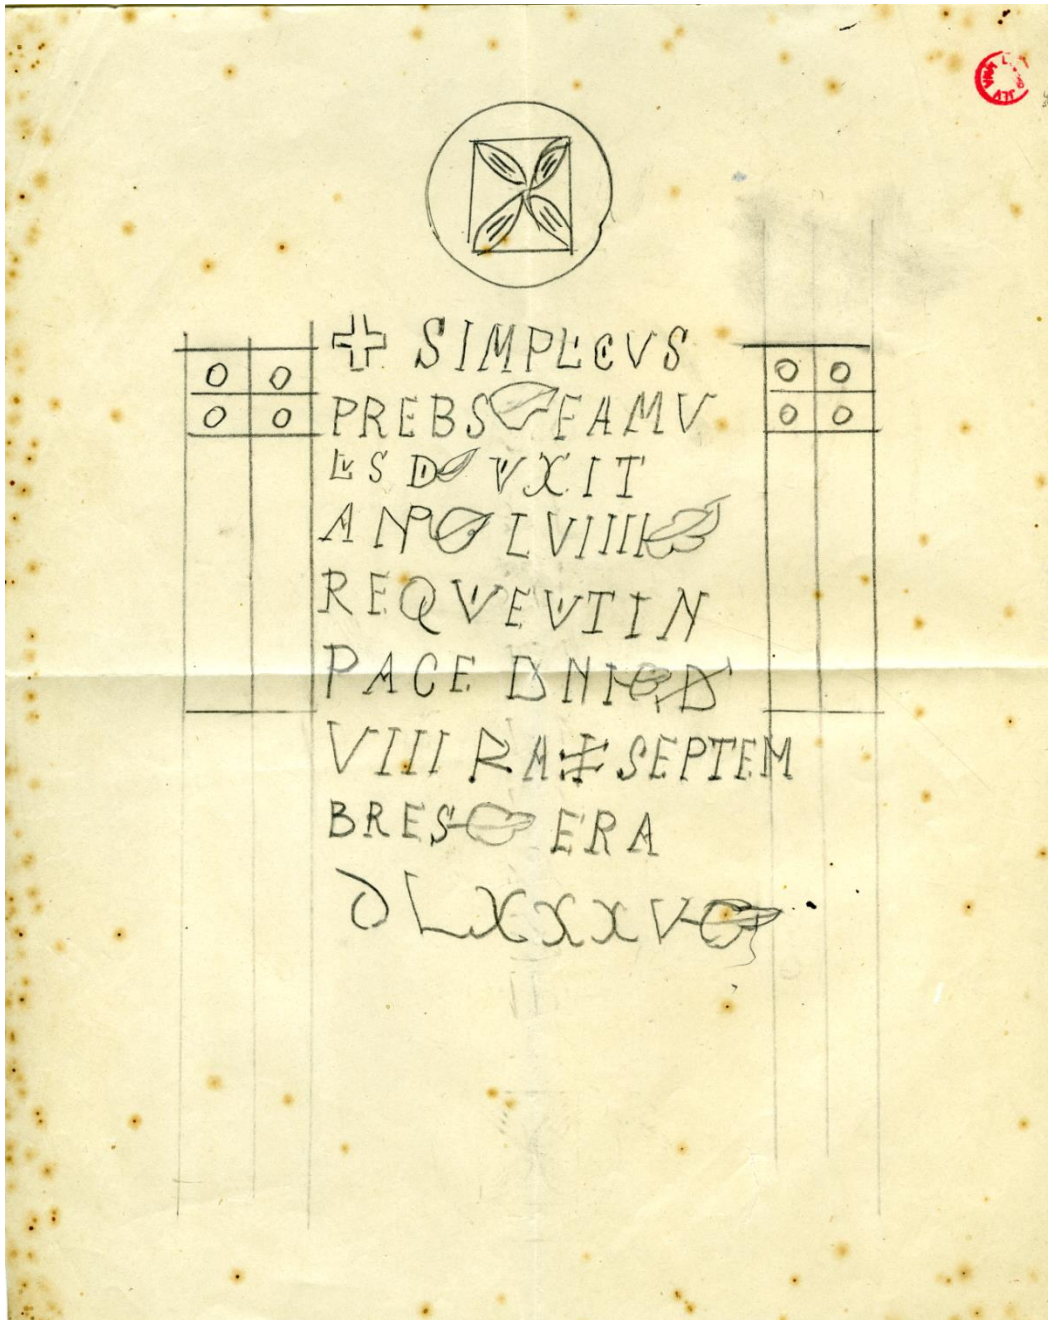 SIMPLICIVS
PREBS FAMV
LVS DI VIXIT
ANO LVIIII
REQVIEVIT IN
PACE DNI D
VIII KAL SEPTEM
BRES ERA
DLXXXV